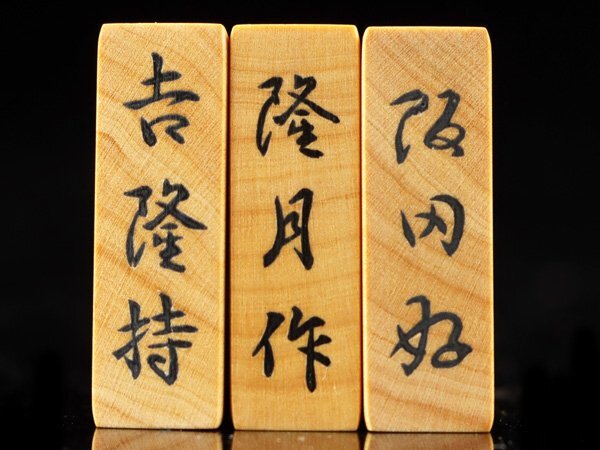 阪田好
隆月作
吉隆持